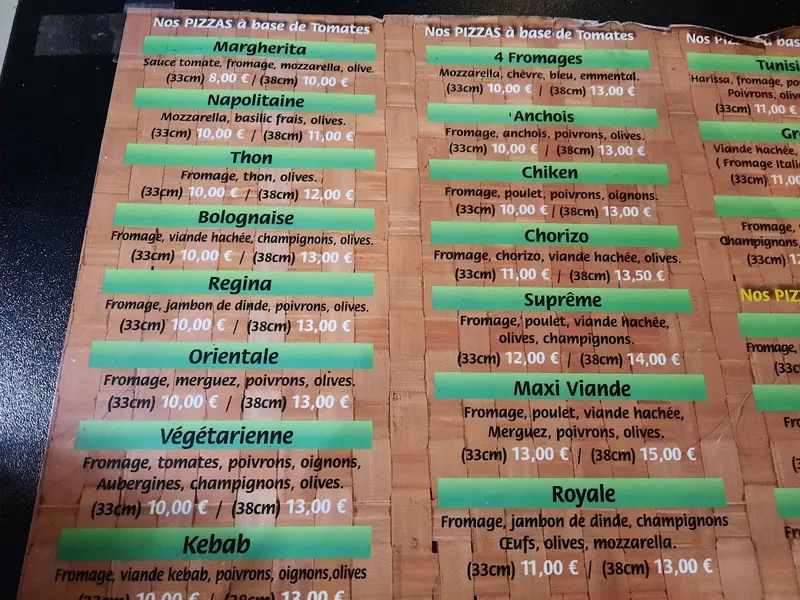 Nos PIZZAS à base de Tomates
Margherita
Sauce tomate, fromage, mozzarella, olive.
(33cm) 8,00 € / (38cm) 10,00 €
Napolitaine
Mozzarella, basilic frais, olives.
(33cm) 10,00 € / (38cm) 11,00 €
Thon
Fromage, thon, olives.
(33cm) 10,00 € / (38cm) 12,00 €
Bolognaise
Fromage, viande hachée, champignons, olives.
(33cm) 10,00 € / (38cm) 13,00 €
Regina
Fromage, jambon de dinde, poivrons, olives.
(33cm) 10,00 € / (38cm) 13,00 €
Orientale
Fromage, merguez, poivrons, olives.
(33cm) 10,00 € / (38cm) 13,00 €
Végétarienne
Fromage, tomates, poivrons, oignons,
Aubergines, champignons, olives.
(33cm) 10,00 € / (38cm) 13,00 €
Kebab
Fromage, viande kebab, poivrons, oignons,olives
(33cm) 10,00 € / (38cm) 13,00 €
Nos PIZZAS à base de Tomates
4 Fromages
Mozzarella, chèvre, bleu, emmental.
(33cm) 10,00 € / (38cm) 13,00 €
Anchois
Fromage, anchois, poivrons, olives.
(33cm) 10,00 € / (38cm) 13,00 €
Chiken
Fromage, poulet, poivrons, oignons.
(33cm) 10,00 € / (38cm) 13,00 €
Chorizo
Fromage, chorizo, viande hachée, olives.
(33cm) 11,00 € / (38cm) 13,50 €
Suprême
Fromage, poulet, viande hachée,
olives, champignons.
(33cm) 12,00 € / (38cm) 14,00 €
Maxi Viande
Fromage, poulet, viande hachée,
Merguez, poivrons, olives.
(33cm) 13,00 € / (38cm) 15,00 €
Royale
Fromage, jambon de dinde, champignons
Œufs, olives, mozzarella.
(33cm) 11,00 € / (38cm) 13,00 €
Nos
Tunisi
Harissa, fromage, po
Poivrons, olives
(33cm) 11,00 €
Gr
Viande hachée,
( Fromage Itali
(33cm) 11,00
Fromage,
Champignons,
(33cm) 1
Nos PIZ
Fromage,
(33c
Fro